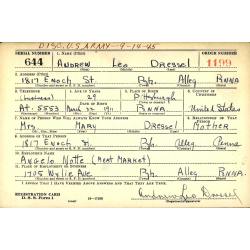 DISC. U.S. ARMY - 9-14-45
SERIAL NUMBER 1. NAME (Print) ORDER NUMBER
644 ANDREW LEO DRESSEL 1199
2. ADDRESS (Print)
1817 Enoch St. Pgh. Alleg Penna
3. TELEPHONE 4. AGE IN YEARS 5. PLACE OF BIRTH 6. COUNTRY OF CITIZENSHIP
(business) 29 Pittsburgh
DATE OF BIRTH
At. 5553 March 22 1911 Penna. United States
7. NAME OF PERSON WHO WILL ALWAYS KNOW YOUR ADDRESS 8. RELATIONSHIP OF THAT PERSON
Mrs. Mary Dressel Mother
9. ADDRESS OF THAT PERSON
1817 Enoch St. Pgh. Alleg Penna
10. EMPLOYER'S NAME
Angelo Notte (Meat Market)
11. PLACE OF EMPLOYMENT OR BUSINESS
1705 Wylie Ave Pgh. Alleg Penna.
I AFFIRM THAT I HAVE VERIFIED ABOVE ANSWERS AND THAT THEY ARE TRUE.
REGISTRATION CARD
D. S. S. Form 1
Andrew Leo Dressel